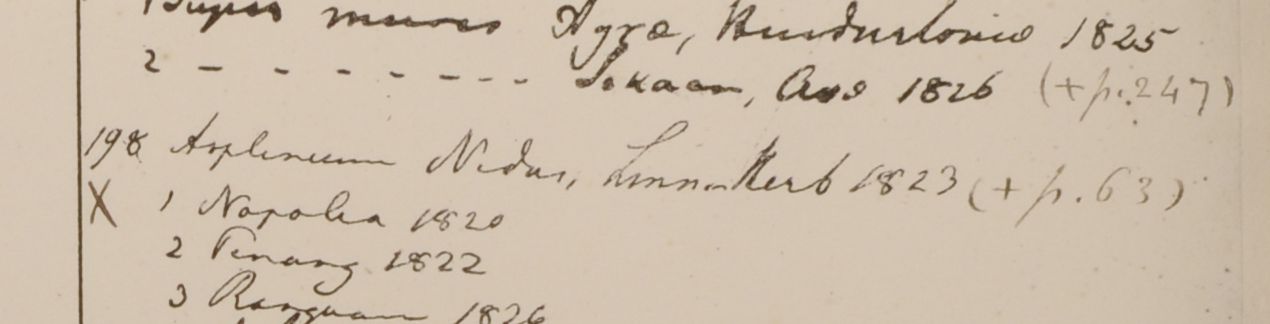 Supra muros Agra, Hindustania 1825
2 - - - - - - - - Sekaan, Ava 1826 (+ p. 247)
198 Asplenium Nidus, Linn. Herb 1823 (+ p. 63)
X 1 Napalia 1820
2 Penang 1822
3 Rangoon 1826